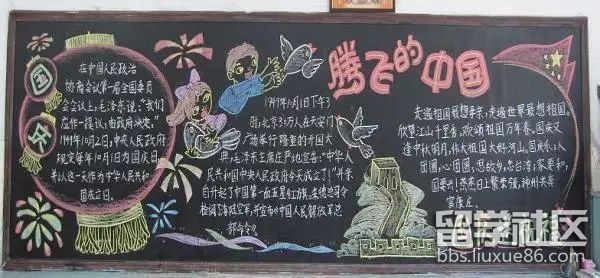 国庆
在中国人民政治
协商会议第一届全国委员
会会议上,毛泽东说:"我们
应作一提议,由政府决定,"
1949年10月2日,中央人民政府
规定每年10月1日为国庆日,
并以这一天作为中华人民共和
国成立日。
1949年10月1日下午3
时,北京30万人在天安门
广场举行隆重的开国大
典,毛泽东主席庄严地宣告:"中华人
民共和国中央人民政府今天成立了!"并亲
自升起了中国第一面五星红旗。朱德总司令
检阅了海陆空军,并宣布《中国人民解放军总
部命令》。
腾飞的中国
走遍祖国最想亲亲,走遍世界最想祖国。
欣望江山千里秀,欢颂祖国万年春。国庆又
逢中秋明月,伟大祖国大好河山。国庆外,人
团圆,心团圆,思故乡,念台湾,家要和,
国要兴!蒸蒸日上繁荣强,神州共奔
富康庄。
留学社区
bbs.liuxue86.com